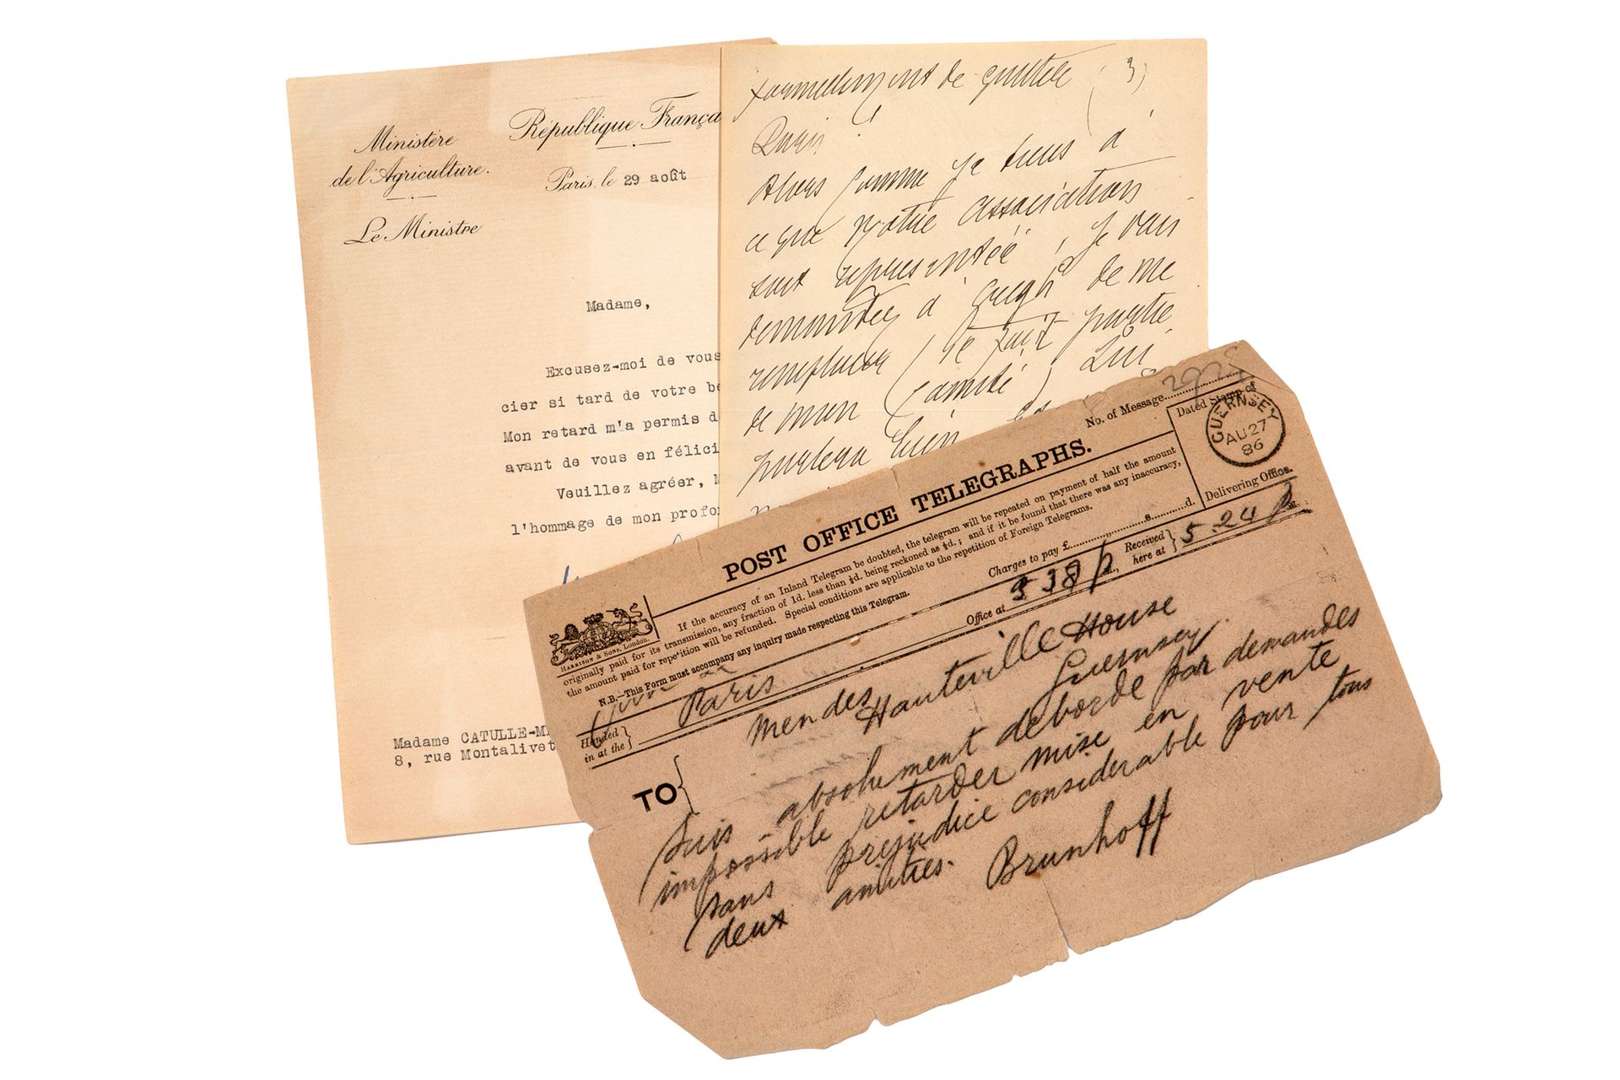 Ministère
de l'Agriculture.
Le Ministre
République França
Paris, le 29 août
Madame,
Excusez-moi de vous
cier si tard de votre be
Mon retard m'a permis d
avant de vous en félici
Veuillez agréer, M
l'hommage de mon profo
Madame CATULLE-M
8, rue Montalivet
de quitter (3)
Paris
Alors comme je tiens à
ce que notre association
soit représentée, je vais
demander à Gregh de me
remplacer (il fait partie
de mon comité) Lui
parlera bien
No. of Message
POST OFFICE TELEGRAPHS.
Dated Stamp of
GUERNSEY
AU 27
86
Delivering Office.
If the accuracy of an Inland Telegram be doubted, the telegram will be repeated on payment of half the amount
originally paid for its transmission, any fraction of 1d. less than ½d. being reckoned as ½d.; and if it be found that there was any inaccuracy,
the amount paid for repetition will be refunded. Special conditions are applicable to the repetition of Foreign Telegrams.
N.B.—This Form must accompany any inquiry made respecting this Telegram.
HARRISON & SONS, LONDON.
Charges to pay £ s. d.
Handed in at the } Paris
Office at 3 38 p
Received here at } 5.24 p
TO {
Mendes Hauteville House
Guernsey
Suis absolument deborde par demandes
impossible retarder mise en vente
sans prejudice considerable pour tous
deux amities. Brunhoff